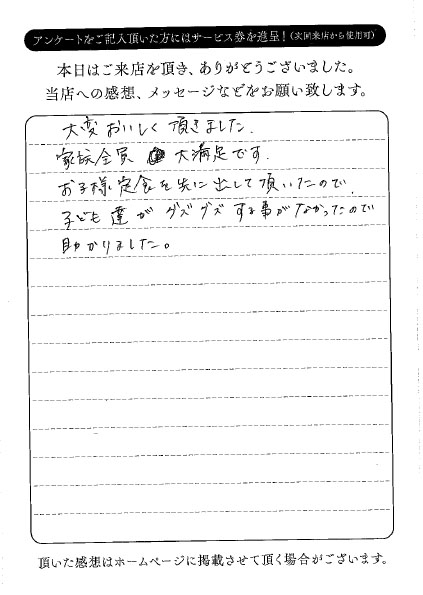 アンケートをご記入頂いた方にはサービス券を進呈！（次回来店から使用可）
本日はご来店を頂き、ありがとうございました。
当店への感想、メッセージなどをお願い致します。
大変おいしく頂きました.
家族全員 大満足です.
お子様定食を先に出して頂いたので、
子ども達がグズグズする事がなかったので
助かりました。
頂いた感想はホームページに掲載させて頂く場合がございます。